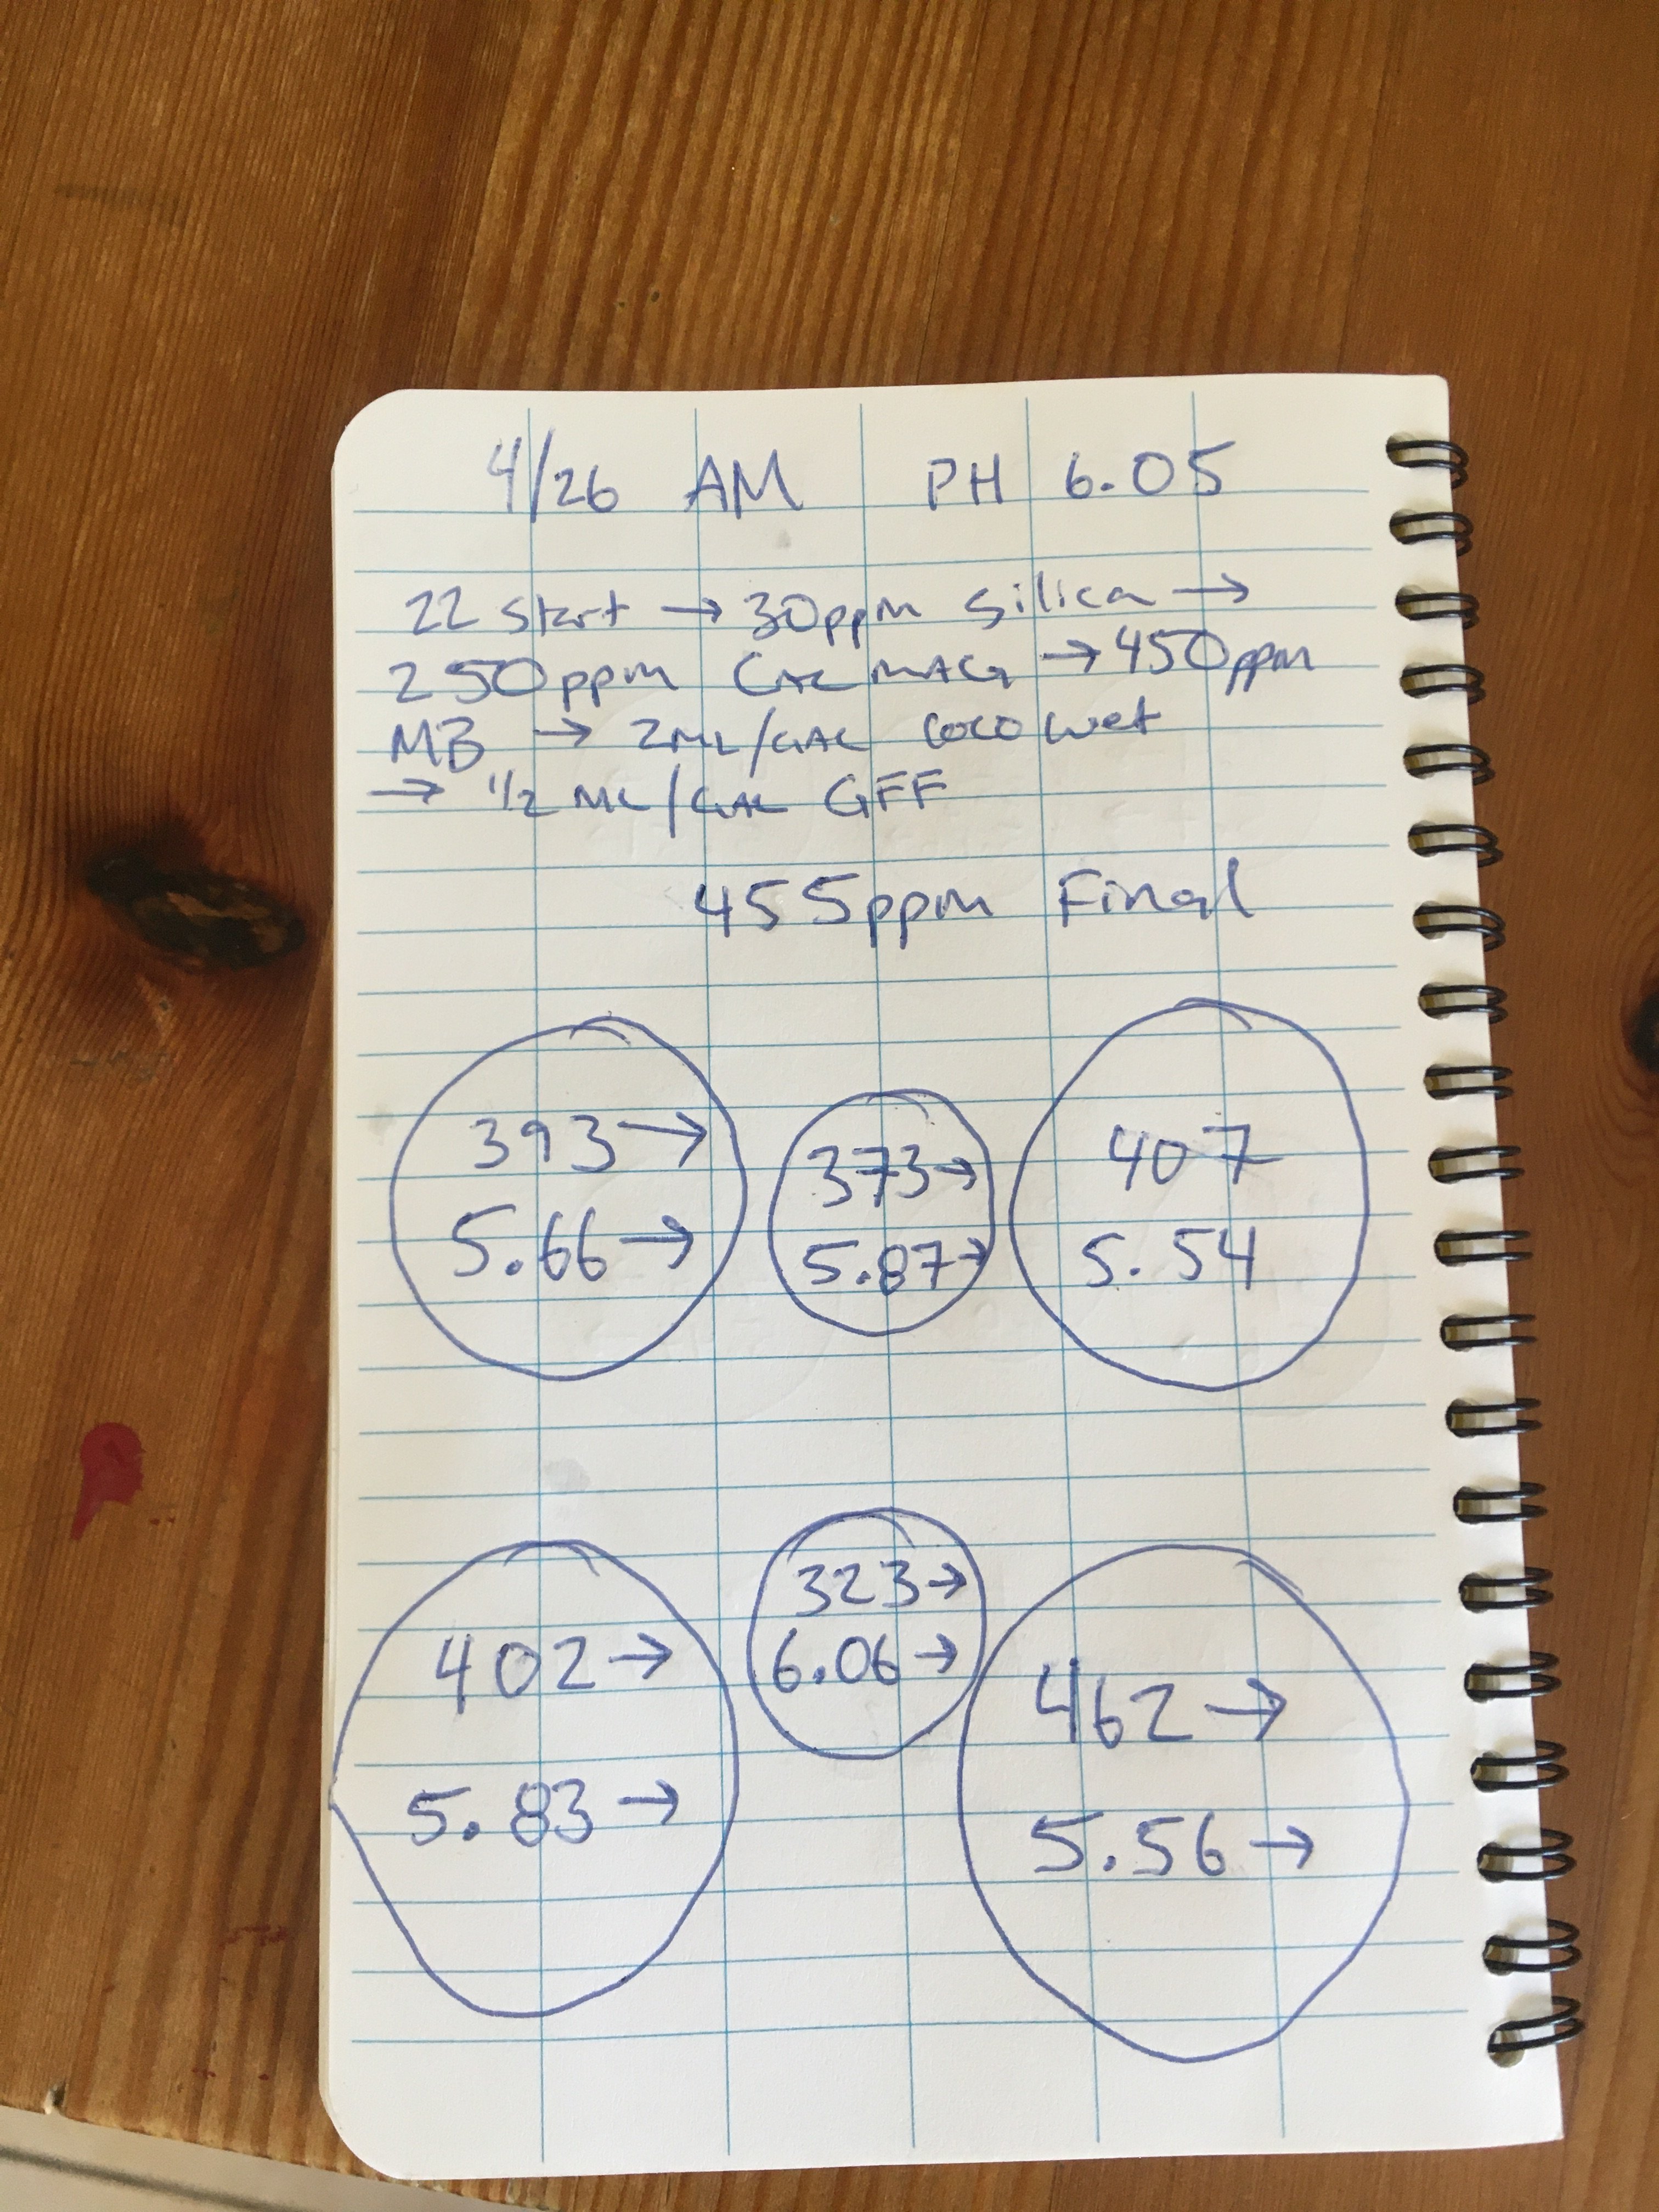 4/26 AM PH 6.05
22 start → 30ppm silica →
250ppm CAL MAG → 450ppm
MB → 2ML/GAL COCO wet
→ 1/2 ML/GAL GFF
455ppm Final
393→ 373→ 407
5.66→ 5.87→ 5.54
323→
6.06→
402→ 462→
5.83→ 5.56→